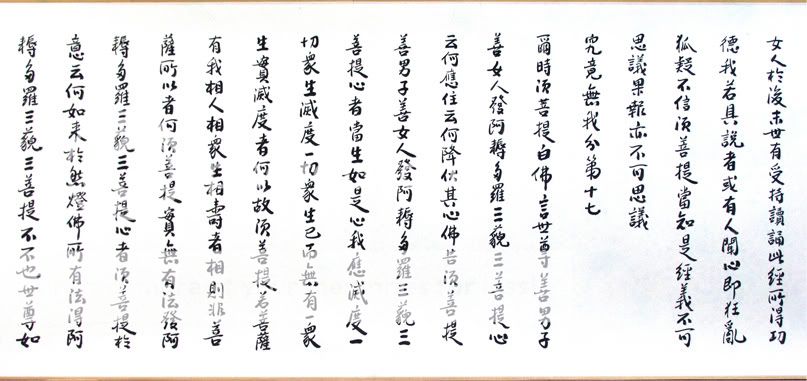 女人於後末世有受持讀誦此經所得功
德我若具說者或有人聞心即狂亂
狐疑不信須菩提當知是經義不可
思議果報亦不可思議
究竟無我分第十七
爾時須菩提白佛言世尊善男子
善女人發阿耨多羅三藐三菩提心
云何應住云何降伏其心佛告須菩提
善男子善女人發阿耨多羅三藐三
菩提心者當生如是心我應滅度一
切衆生滅度一切衆生已而無有一衆
生實滅度者何以故須菩提若菩薩
有我相人相衆生相壽者相則非菩
薩所以者何須菩提實無有法發阿
耨多羅三藐三菩提心者須菩提於
意云何如来於然燈佛所有法得阿
耨多羅三藐三菩提不不也世尊如